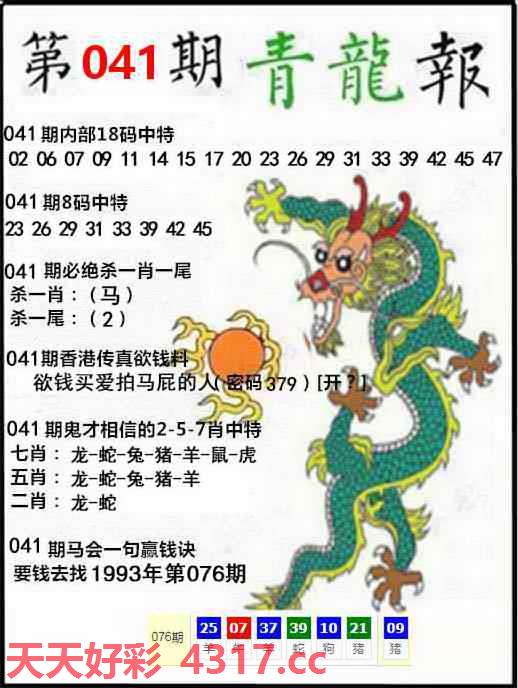 第041期青龍報
041期内部18码中特
02 06 07 09 11 14 15 17 20 23 26 29 31 33 39 42 45 47
041期8码中特
23 26 29 31 33 39 42 45
041 期必绝杀一肖一尾
杀一肖：（马）
杀一尾：（2）
041期香港传真欲钱料
欲钱买爱拍马屁的人(密码379)[开?]
041期鬼才相信的2-5-7肖中特
七肖： 龙-蛇-兔-猪-羊-鼠-虎
五肖： 龙-蛇-兔-猪-羊
二肖： 龙-蛇
041期马会一句赢钱诀
要钱去找1993年第076期
076期 25 07 37 39 10 21 09
羊 蛇 狗 猪 猪
天天好彩 4317.cc